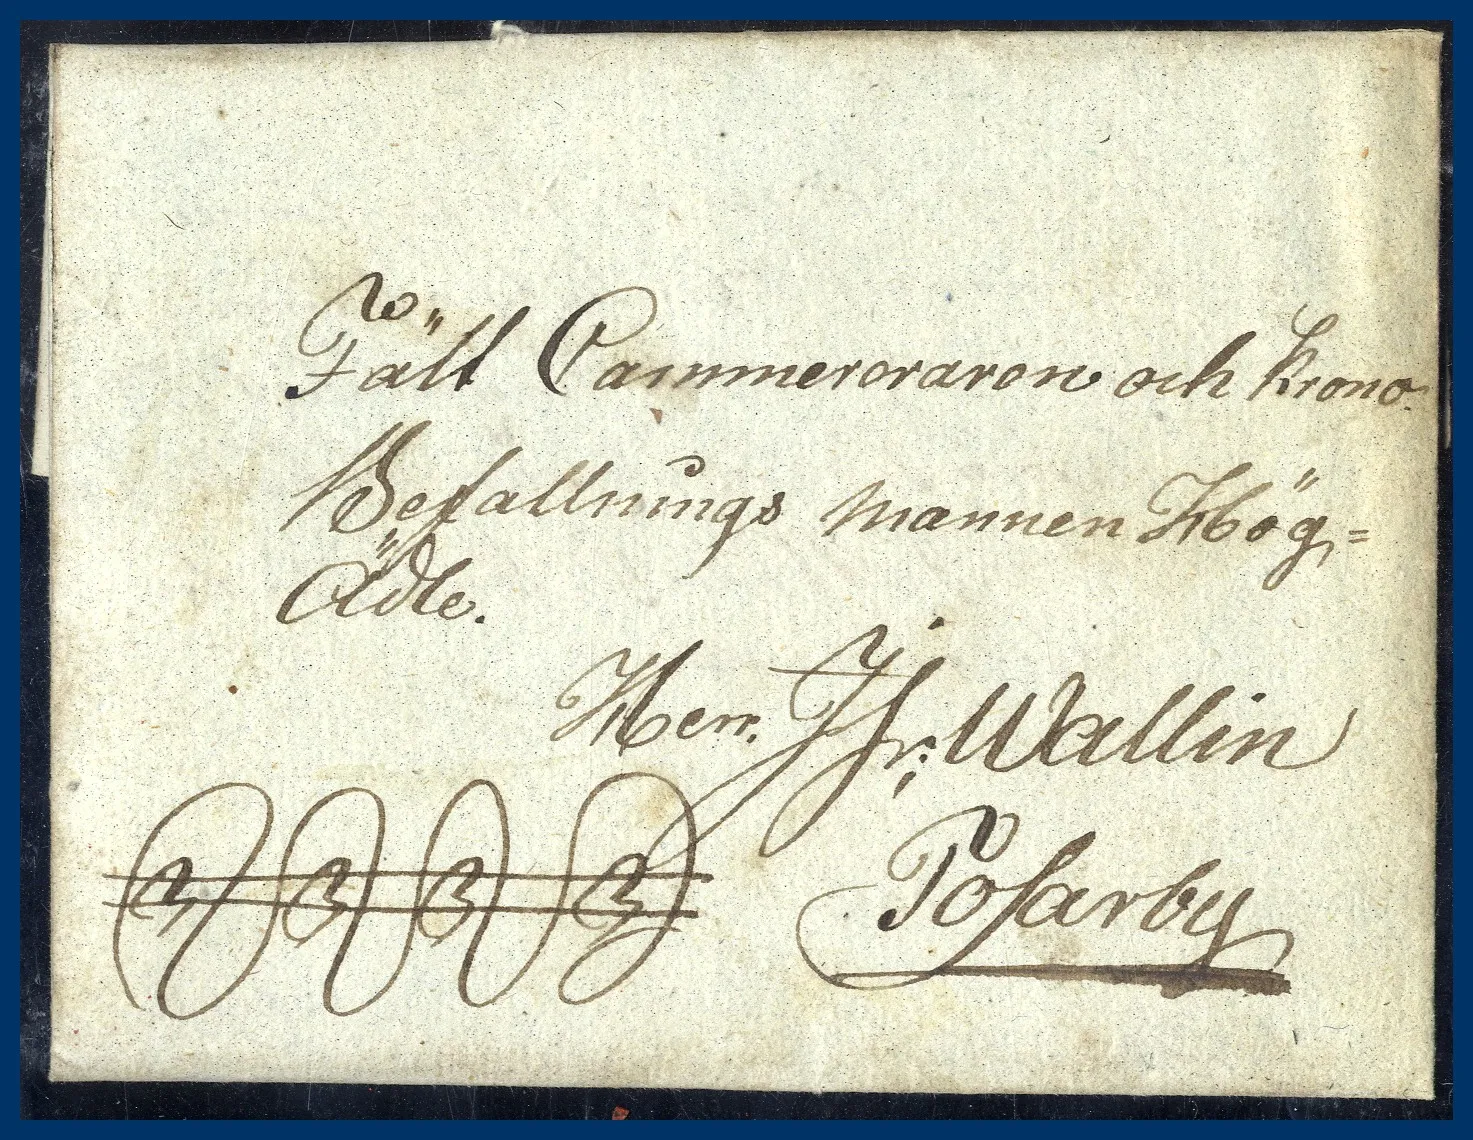 Fält Cammereraren och Krono
Befallnings mannen Hög=
Ädle.
Herr J Fr: Wallin
Tosarby